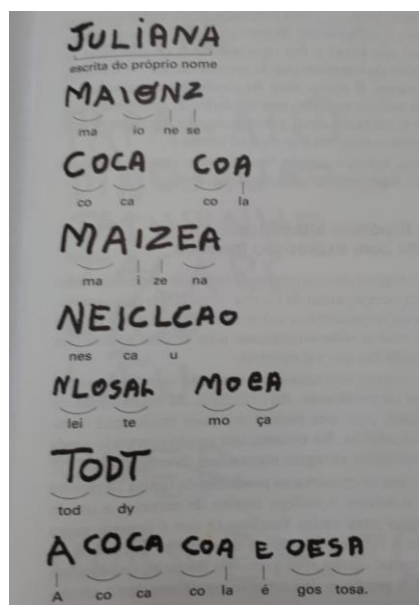 JULIANA
escrita do próprio nome
MAIONZ
ma io ne se
COCA COA
co ca co la
MAIZEA
ma i ze na
NEICLCAO
nes ca u
NLOSAL MOEA
lei te mo ça
TODT
tod dy
A COCA COA E OESA
A co ca co la é gos tosa.